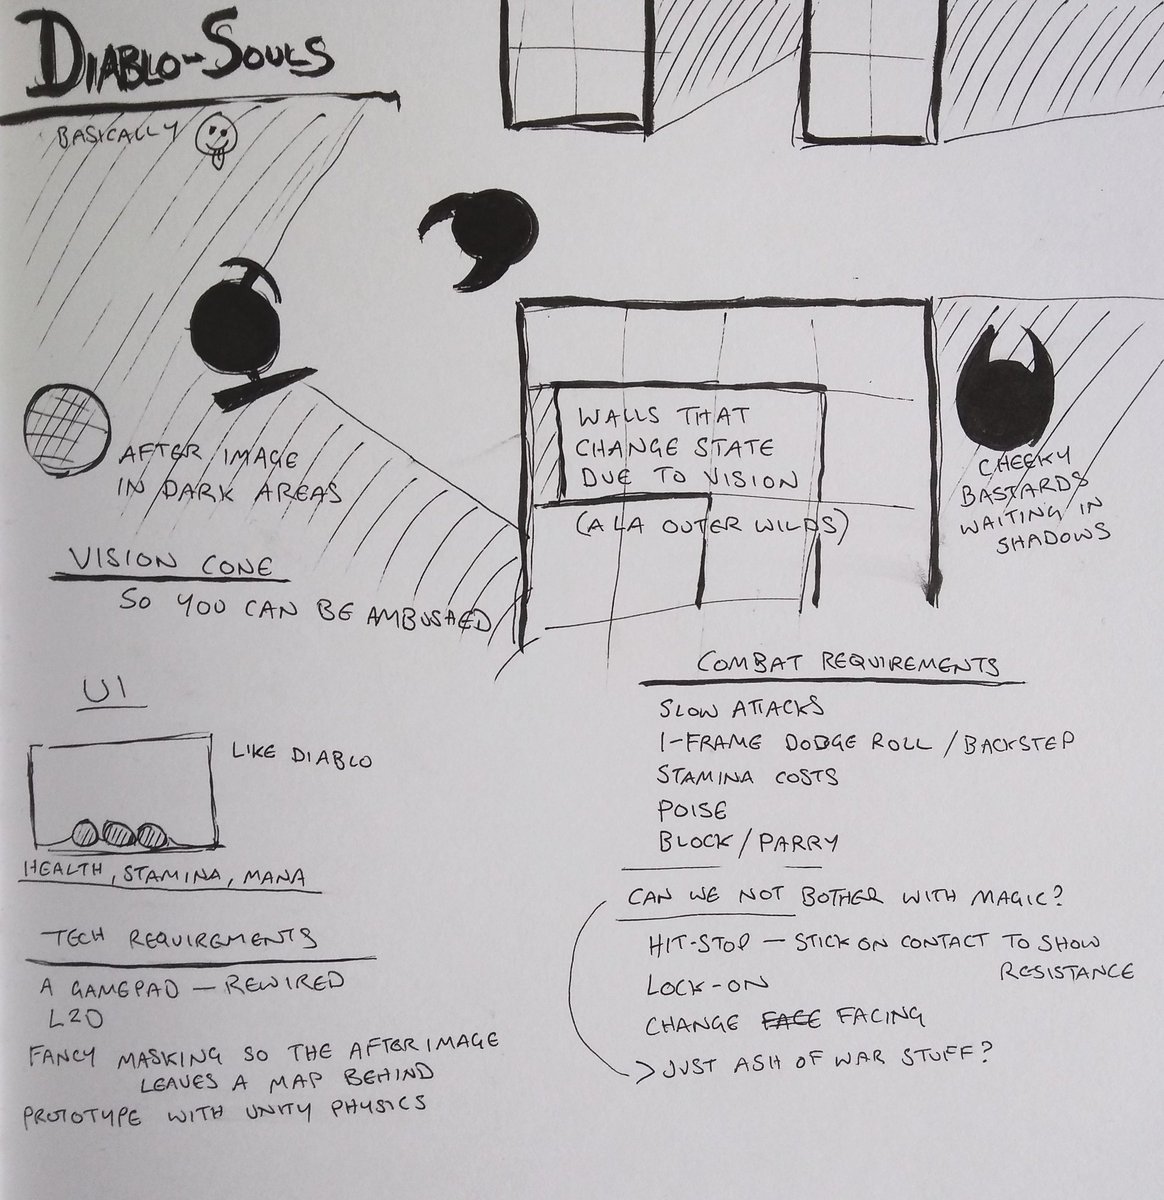 DIABLO-SOULS
BASICALLY
AFTER IMAGE
IN DARK AREAS
VISION CONE
SO YOU CAN BE AMBUSHED
WALLS THAT
CHANGE STATE
DUE TO VISION
(A LA OUTER WILDS)
CHEEKY
BASTARDS
WAITING IN
SHADOWS
UI
LIKE DIABLO
HEALTH, STAMINA, MANA
TECH REQUIREMENTS
A GAMEPAD — REWIRED
L2D
FANCY MASKING SO THE AFTERIMAGE
LEAVES A MAP BEHIND
PROTOTYPE WITH UNITY PHYSICS
COMBAT REQUIREMENTS
SLOW ATTACKS
I-FRAME DODGE ROLL / BACKSTEP
STAMINA COSTS
POISE
BLOCK / PARRY
CAN WE NOT BOTHER WITH MAGIC?
HIT-STOP — STICK ON CONTACT TO SHOW
RESISTANCE
LOCK-ON
CHANGE FACE FACING
> JUST ASH OF WAR STUFF?